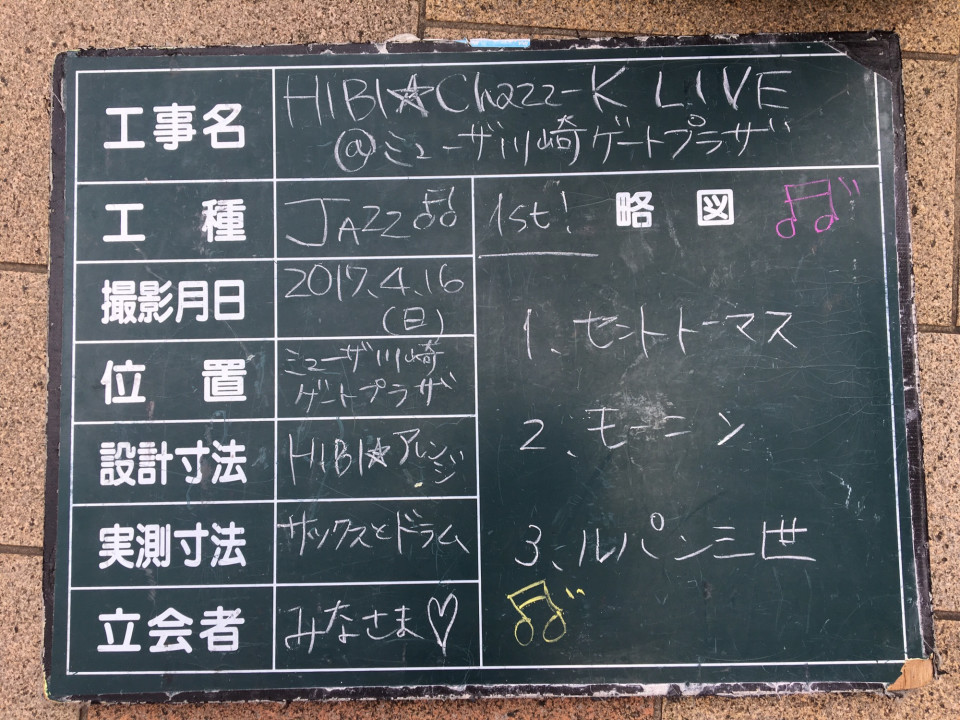 工事名
HIBI★Chazz-K LIVE
@ミューザ川崎ゲートプラザ
工種
JAZZ♫
撮影月日
2017.4.16
(日)
位置
ミューザ川崎
ゲートプラザ
設計寸法
HIBI★アレンジ
実測寸法
サックスとドラム
立会者
みなさま♡
1st! 略図 ♫
1、セントトーマス
2、モーニン
3、ルパン三世
♫